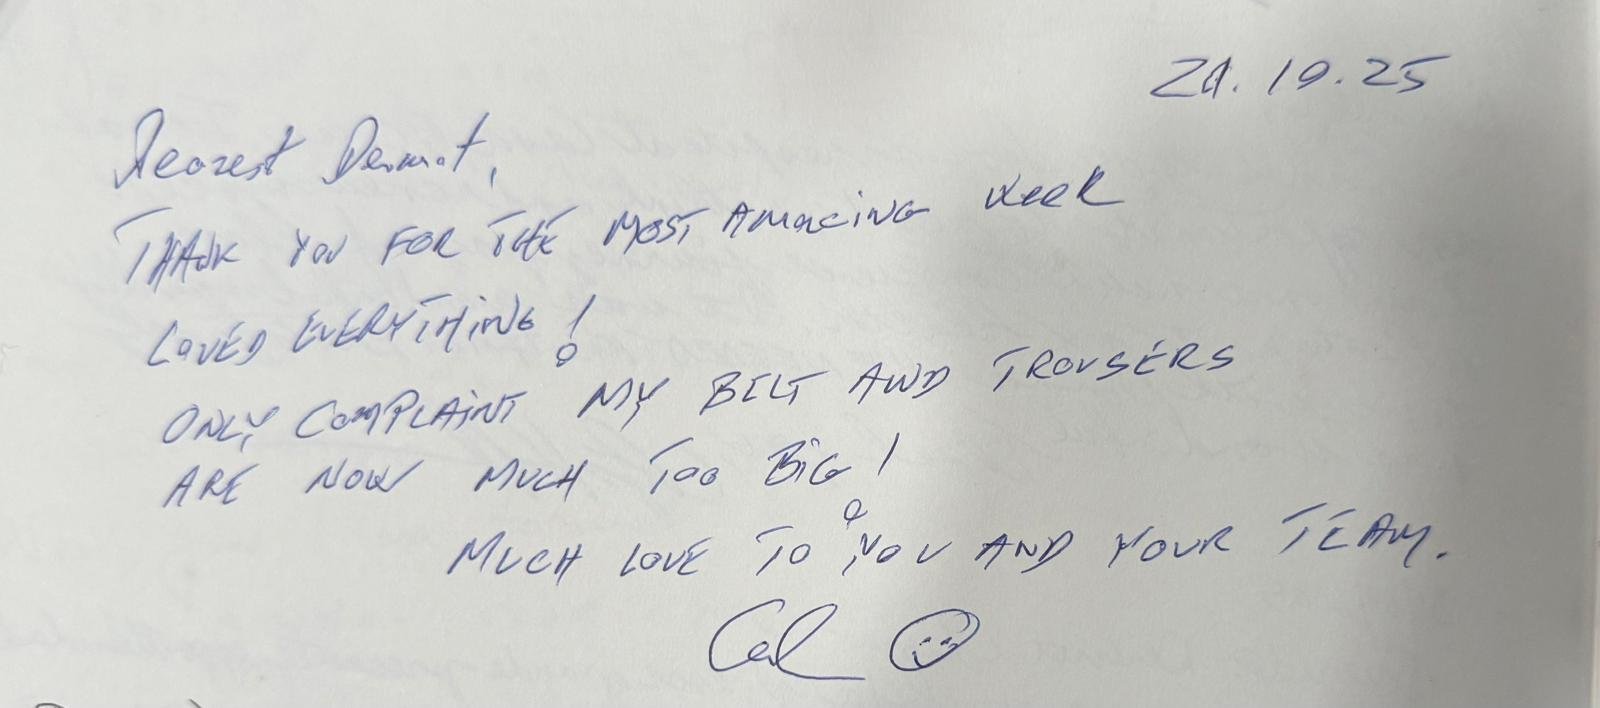 21.10.25
Dearest Dermot,
THANK YOU FOR THE MOST AMAZING WEEK
LOVED EVERYTHING!
ONLY COMPLAINT MY BELT AND TROUSERS
ARE NOW MUCH TOO BIG!
MUCH LOVE TO YOU AND YOUR TEAM.